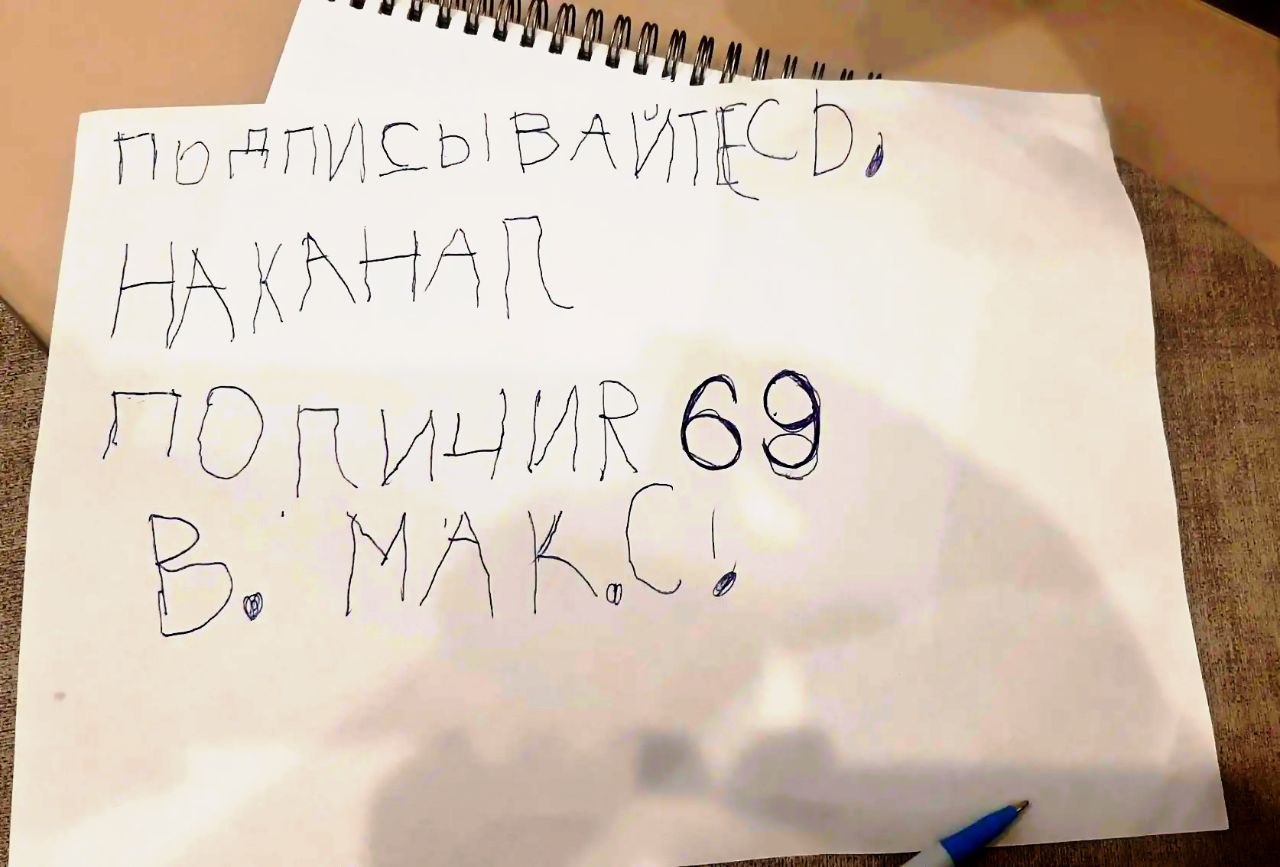 ПОДПИСЫВАЙТЕСЬ,
НАКАНАЛ
ПОЛИЦИЯ 69
В. МАК.С!